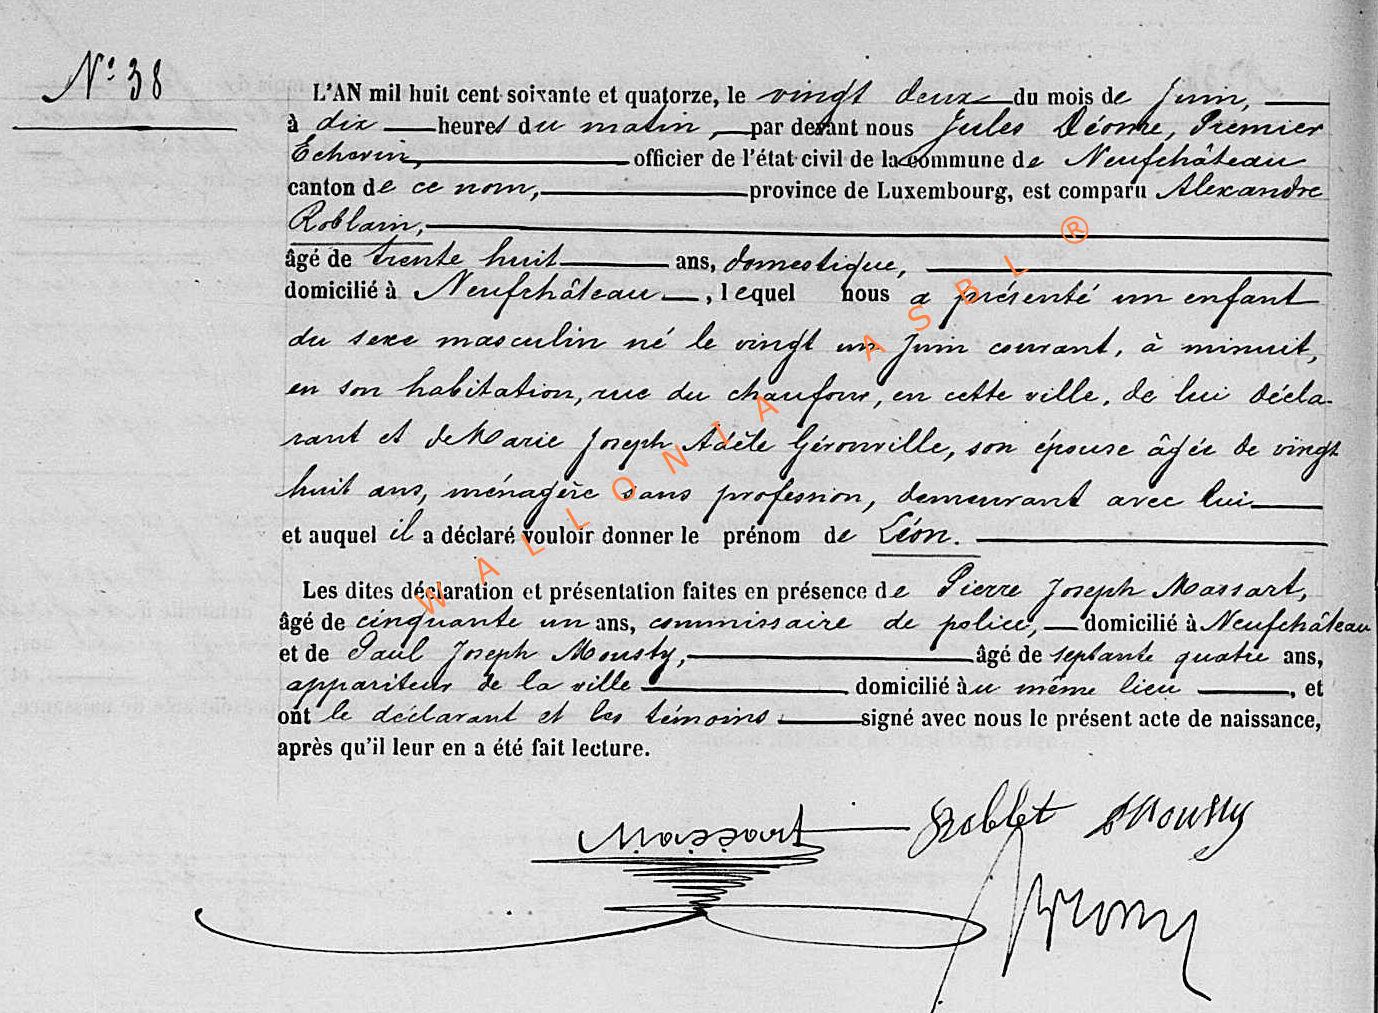 N° 38
L'AN mil huit cent soixante et quatorze, le vingt deux du mois de Juin,
à dix heures du matin, par devant nous Jules Déome, Premier
Echevin, officier de l'état civil de la commune de Neufchâteau
canton de ce nom, province de Luxembourg, est comparu Alexandre
Roblain,
âgé de trente huit ans, domestique,
domicilié à Neufchâteau, lequel nous a présenté un enfant
du sexe masculin né le vingt un Juin courant, à minuit,
en son habitation, rue du chaufour, en cette ville, de lui décla-
rant et de Marie Joseph Adèle Gérouville, son épouse âgée de vingt
huit ans, ménagère sans profession, demeurant avec lui
et auquel il a déclaré vouloir donner le prénom de Léon.
Les dites déclaration et présentation faites en présence de Pierre Joseph Massart,
âgé de cinquante un ans, commissaire de police, domicilié à Neufchâteau
et de Paul Joseph Mousty, âgé de septante quatre ans,
appariteur de la ville domicilié au même lieu, et
ont le déclarant et les témoins signé avec nous le présent acte de naissance,
après qu'il leur en a été fait lecture.
Massart Roblet Mousty
WALLONIA ASBL ®